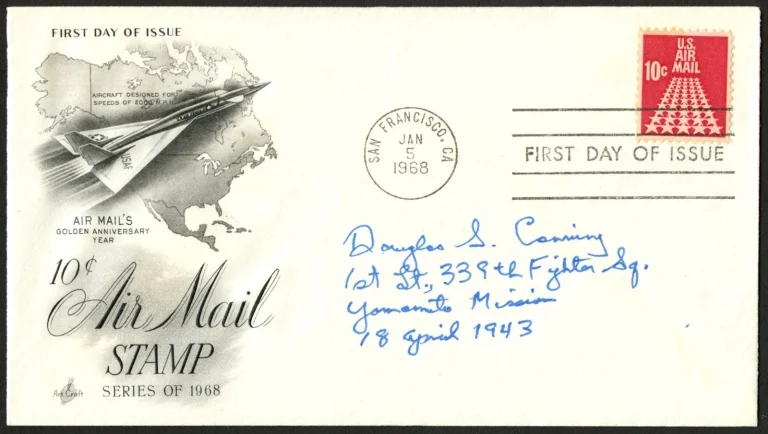 FIRST DAY OF ISSUE
AIRCRAFT DESIGNED FOR
SPEEDS OF 2000 M.P.H.
USAF
AIR MAIL'S
GOLDEN ANNIVERSARY
YEAR
10¢
Air Mail
STAMP
SERIES OF 1968
Art Craft
SAN FRANCISCO, CA
JAN
5
1968
U.S.
AIR
10c MAIL
FIRST DAY OF ISSUE
Douglas S. Canning
1st Lt., 339th Fighter Sq.
Yamamoto Mission
18 April 1943